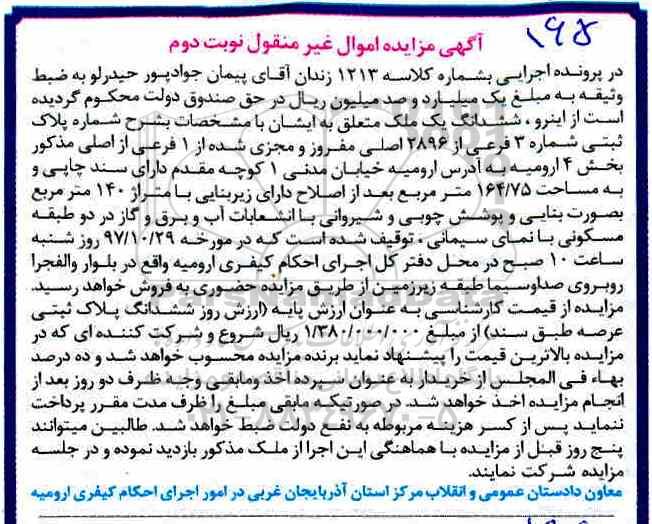 ۱۹۵
آگهی مزایده اموال غیر منقول نوبت دوم
در پرونده اجرایی بشماره کلاسه ۱۲۱۳ زندان آقای پیمان جوادپور حیدرلو به ضبط
وثیقه به مبلغ یک میلیارد و صد میلیون ریال در حق صندوق دولت محکوم گردیده
است از اینرو ، ششدانگ یک ملک متعلق به ایشان با مشخصات بشرح شماره پلاک
ثبتی شماره ۳ فرعی از ۲۸۹۶ اصلی مفروز و مجزی شده از ۱ فرعی از اصلی مذکور
بخش ۴ ارومیه به آدرس ارومیه خیابان مدنی ۱ کوچه مقدم دارای سند چاپی و
به مساحت ۱۶۴/۷۵ متر مربع بعد از اصلاح دارای زیربنایی با متراژ ۱۴۰ متر مربع
بصورت بنایی و پوشش چوبی و شیروانی با انشعابات آب و برق و گاز در دو طبقه
مسکونی با نمای سیمانی ، توقیف شده است که در مورخه ۹۷/۱۰/۲۹ روز شنبه
ساعت ۱۰ صبح در محل دفتر کل اجرای احکام کیفری ارومیه واقع در بلوار والفجر۱
روبروی صداوسیما طبقه زیرزمین از طریق مزایده حضوری به فروش خواهد رسید.
مزایده از قیمت کارشناسی به عنوان ارزش پایه (ارزش روز ششدانگ پلاک ثبتی
عرصه طبق سند) از مبلغ ۱/۳۸۰/۰۰۰/۰۰۰ ریال شروع و شرکت کننده ای که در
مزایده بالاترین قیمت را پیشنهاد نماید برنده مزایده محسوب خواهد شد و ده درصد
بهاء فی المجلس از خریدار به عنوان سپرده اخذ ومابقی وجیه ظرف دو روز بعد از
انجام مزایده اخذ خواهد شد. در صورتیکه مابقی مبلغ را ظرف مدت مقرر پرداخت
ننماید پس از کسر هزینه مربوطه به نفع دولت ضبط خواهد شد. طالبین میتوانند
پنج روز قبل از مزایده با هماهنگی این اجرا از ملک مذکور بازدید نموده و در جلسه
مزایده شرکت نمایند.
معاون دادستان عمومی و انقلاب مرکز استان آذربایجان غربی در امور اجرای احکام کیفری ارومیه
ParsNamadData
۰۲۱-۸۸۳۴۹۶۷۰-۵